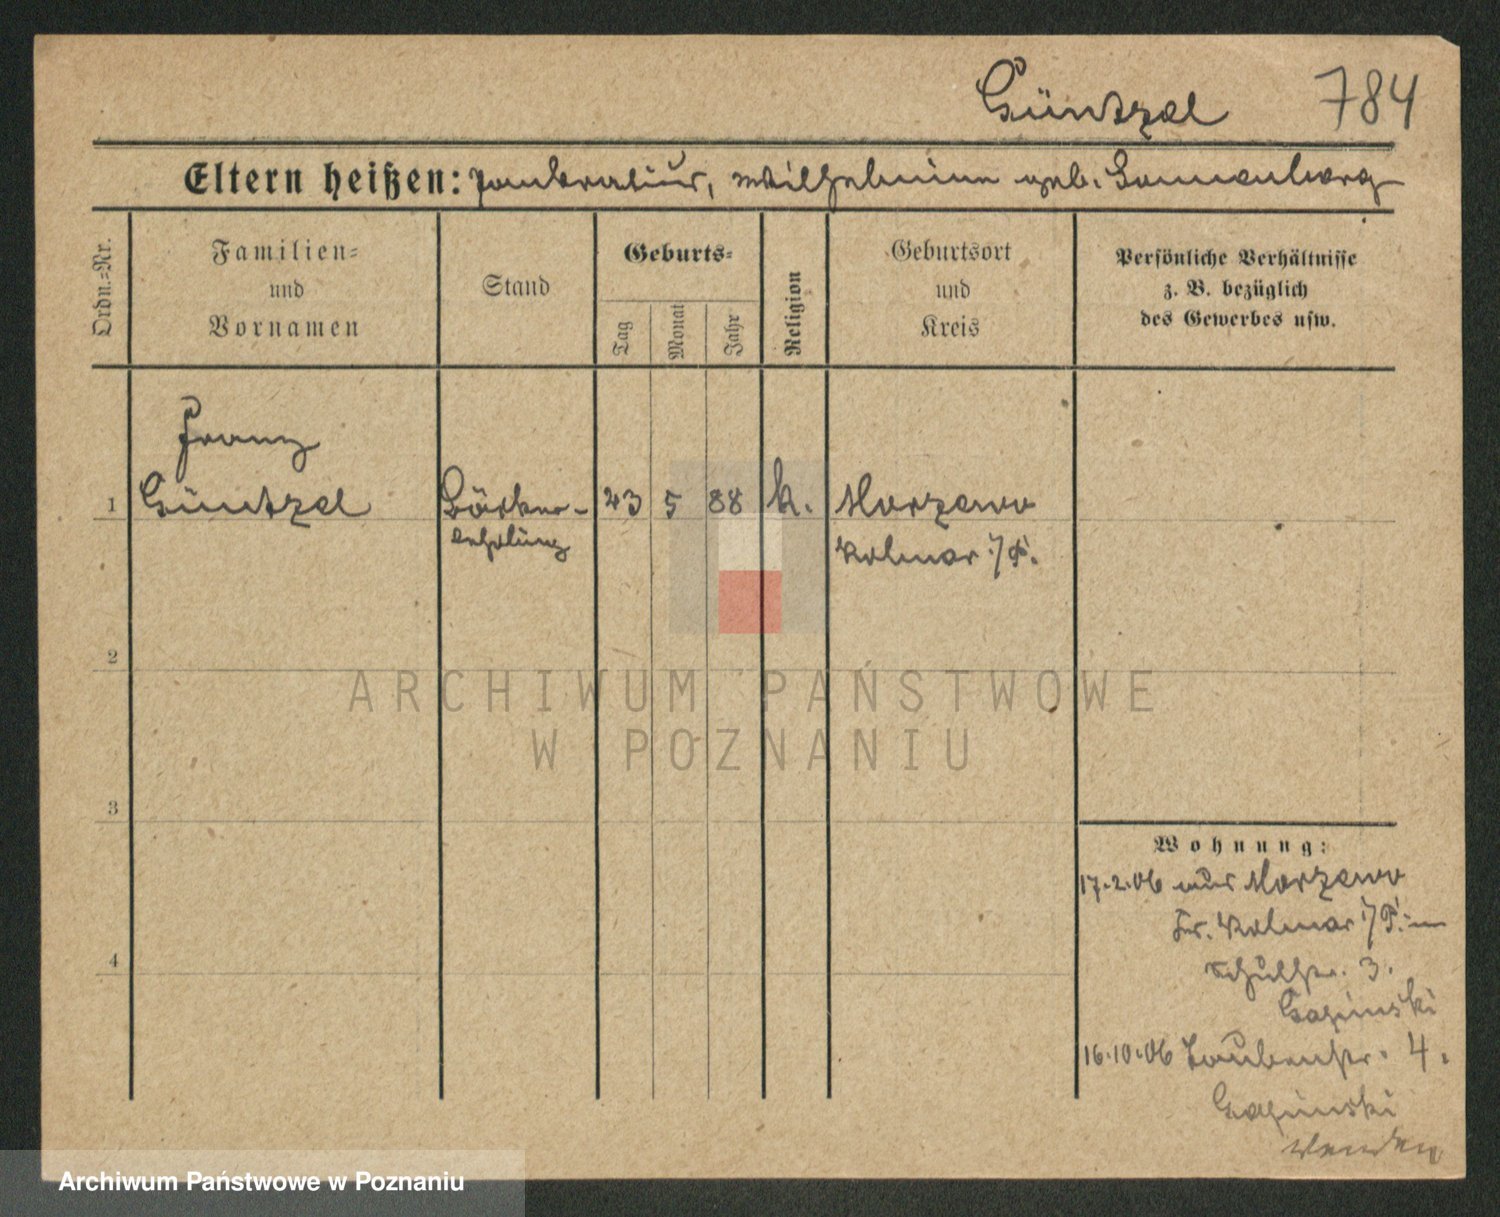 Güntzel 784
Eltern heißen: Pankratius, Wilhelmine geb. Sonnenberg
Ordn.-Nr.
Familien-
und
Vornamen
Stand
Geburts-
Tag
Monat
Jahr
Religion
Geburtsort
und
Kreis
Persönliche Verhältnisse
z. B. bezüglich
des Gewerbes usw.
Franz
1 Güntzel Bäcker- 23 5 88 k. Morzewo
lehrling Kolmar i/P.
2
3
4
Wohnung:
17.2.06 aus Morzewo
Kr. Kolmar i/P. –
Schulstr. 3.
16.10.06 Taubenstr. 4.
Wenden
ARCHIWUM PAŃSTWOWE
W POZNANIU
Archiwum Państwowe w Poznaniu